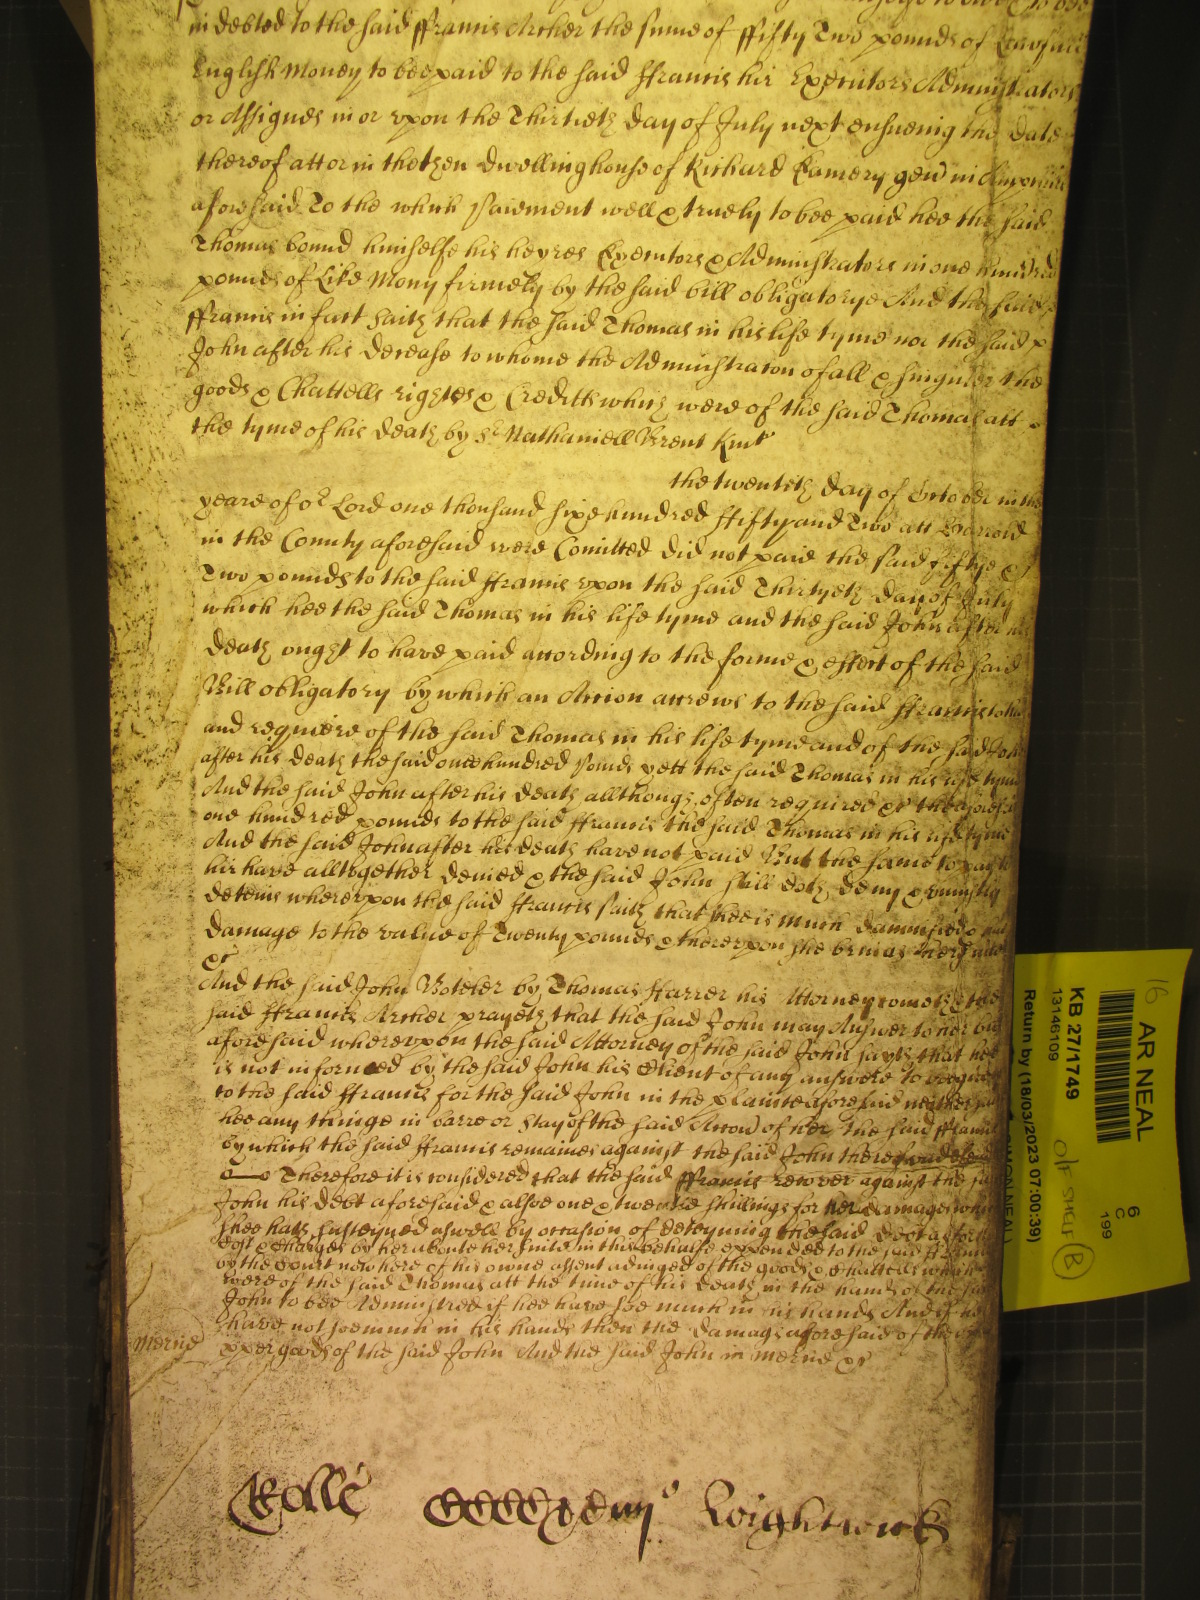 in debted to the said ffrancis Archer the sume of ffifty Two pounds of Lawfull
English Money to bee paid to the said ffrancis his Executors Administrators
or Assignes in or vpon the Thirtieth day of July next ensueing the date
thereof att or in the then dwelling house of Richard gen in
aforesaid To the which paiement well & truely to bee paid hee the said
Thomas bound himselfe his heyres Executors & Administrators in one hundred
pounds of Like Mony firmely by the said bill obligatorye And the said
ffrancis in fact saith that the said Thomas in his life tyme nor the said
John after his decease to whome the Administracon of all & singuler the
goods & Chattells rightes & Creditts which were of the said Thomas att
the tyme of his death by Sr Nathaniell Brent Knt
the twentith day of October in the
yeare of or Lord one thousand sixe hundred ffifty and Two att
in the County aforesaid were Comitted did not paie the said fiftye &
Two pounds to the said ffrancis vpon the said Thirtyeth day of July
which hee the said Thomas in his life tyme and the said John after his
death ought to have paid according to the forme & effect of the said
Bill obligatory by which an Accion accrews to the said ffrancis to
and requiere of the said Thomas in his life tyme and of the said John
after his death the said one hundred pounds yett the said Thomas in his life tyme
And the said John after his death allthough often required &c the aforesaid
one hundred pounds to the said ffrancis the said Thomas in his life tyme
And the said John after his death have not paid But the same to pay to
his have alltogether denied & the said John still doth deny & uniustly
deteins wherevpon the said ffrancis saith that hee is much damnified &
damage to the value of Twenty pounds & therevpon she brings
&c
And the said John Boteler by Thomas ffarrer his Attorney cometh & the
said ffrancis Archer prayeth that the said John may Answer to her
aforesaid wherevpon the said Attorney of the said John sayth that hee
is not informed by the said John his Client of any answere to
to the said ffrancis for the said John in the plainte aforesaid neither
hee any thinge in barre or stay of the said Accon of her the said ffrancis
by which the said ffrancis remaines against the said John
Therefore it is considered that the said ffrancis recover against the said
John his debt aforesaid & alsoe one & twentie shillings for her damages which
shee hath susteyned aswell by occasion of deteyning the said debt as for
Cost & Charges by her aboute her suite in this behalfe expended to the said ffrancis
by the Court now here of his owne assent adiuged of the goods & Chattells which
were of the said Thomas att the time of his death in the hands of the said
John to bee Administred if hee have soe much in his hands And if hee
have not soe much in his hands then the damages aforesaid of the
proper goods of the said John And the said John in mercie &c
mercie
Rolle
Wightwick
AR NEAL
KB 27/1749
13146109
Return by (18/03/2023 07:00:39)
6
C
199
16
(B)